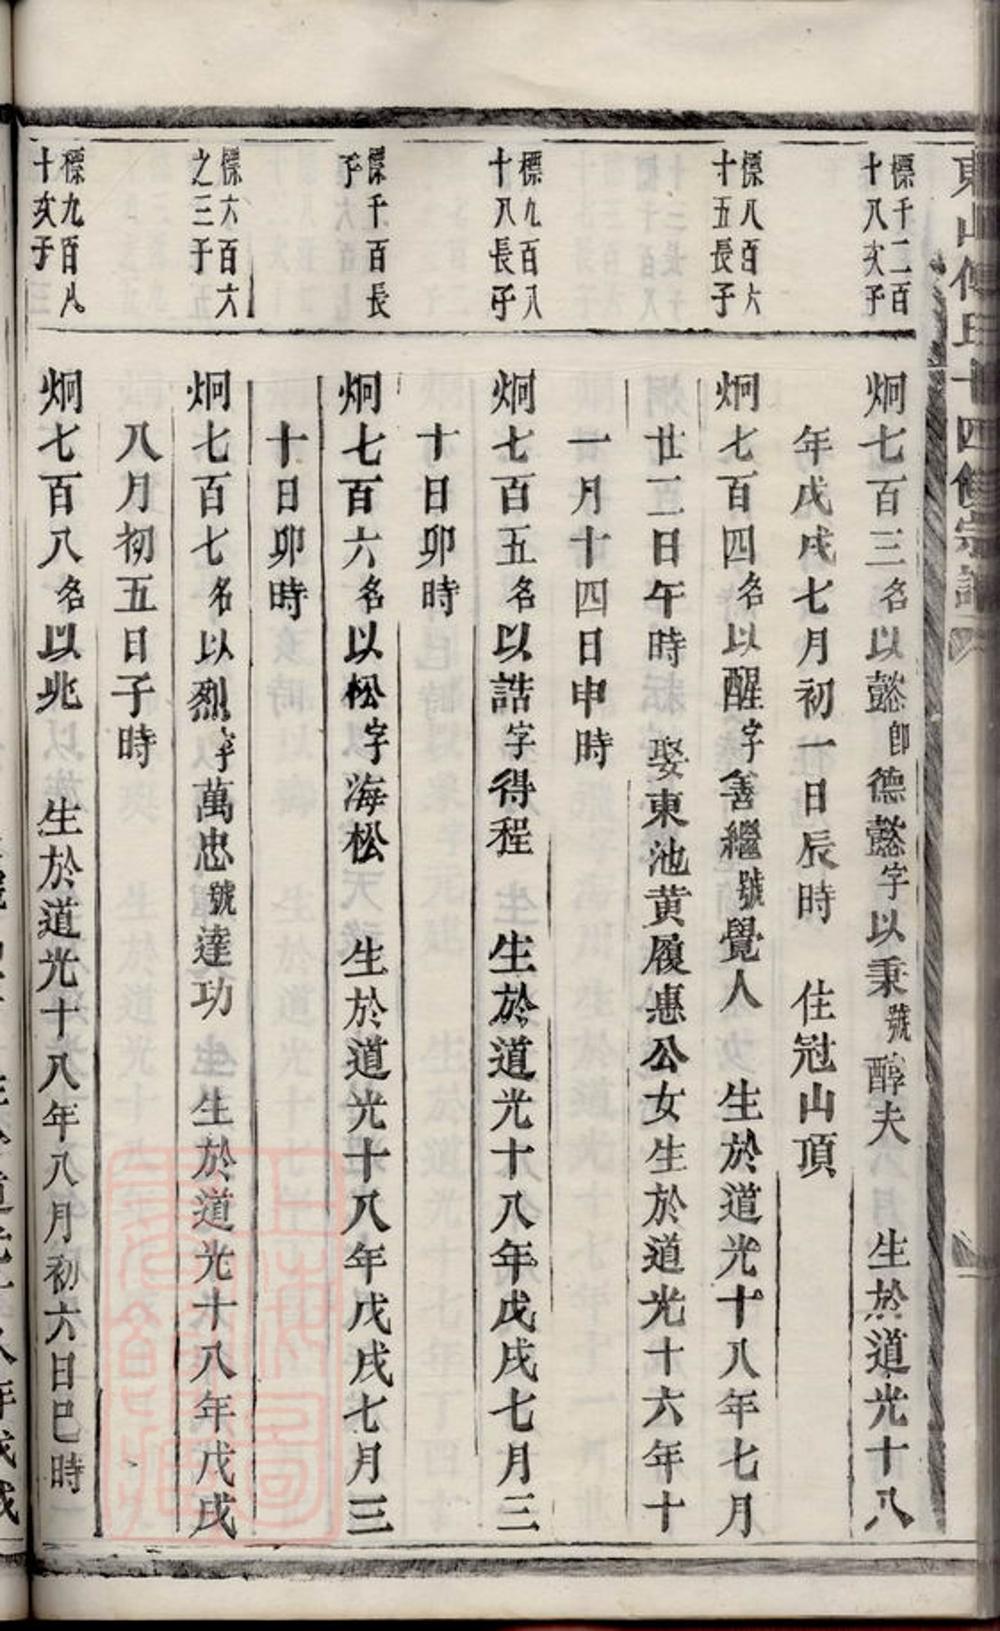 東山傅氏十四修宗譜
標千二百
十八次子
炯七百三名以懿卽德懿字以秉號醇夫 生於道光十八
年戊戌七月初一日辰時 住冠山頂
標八百六
十五長子
炯七百四名以醒字善繼號覺人 生於道光十八年七月
廿二日午時 娶東池黄履惠公女生於道光十六年十
一月十四日申時
標九百八
十八長子
炯七百五名以誥字得程 生於道光十八年戊戌七月三
十日卯時
標千百長
子
炯七百六名以松字海松 生於道光十八年戊戌七月三
十日卯時
標六百六
之三子
炯七百七名以烈字萬忠號達功 生於道光十八年戊戌
八月初五日子時
標九百八
十次子
炯七百八名以兆 生於道光十八年八月初六日巳時